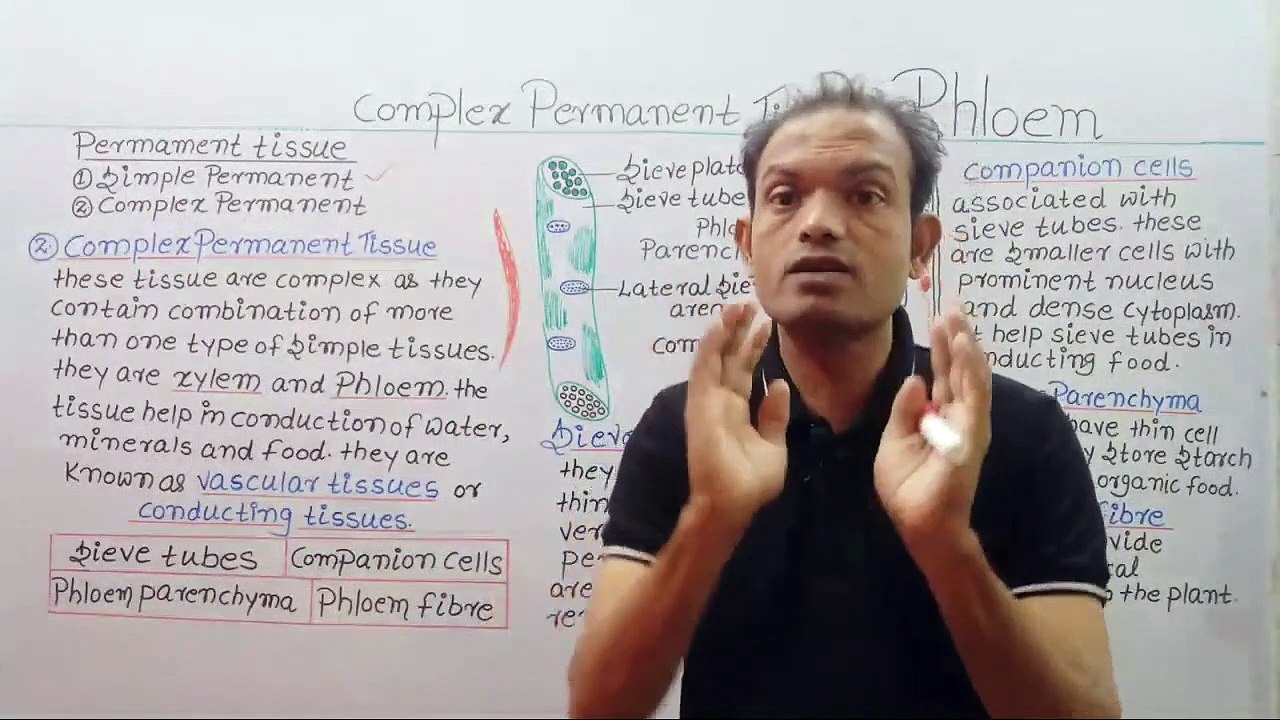 Complex Permanent Phloem
Permament tissue
① Simple Permanent
② Complex Permanent
② Complex Permanent Tissue
these tissue are complex as they
contain combination of more
than one type of simple tissues.
they are xylem and Phloem. the
tissue help in conduction of water,
minerals and food. they are
known as vascular tissues or
conducting tissues.
Sieve tubes
Companion cells
Phloem parenchyma
Phloem fibre
Sieve plate
Sieve tube
Lateral
they
are
Companion cells
associated with
sieve tubes. these
are smaller cells with
prominent nucleus
and dense cytoplasm.
help sieve tubes in
food.
Parenchyma
thin cell
store starch
organic food.
the plant.